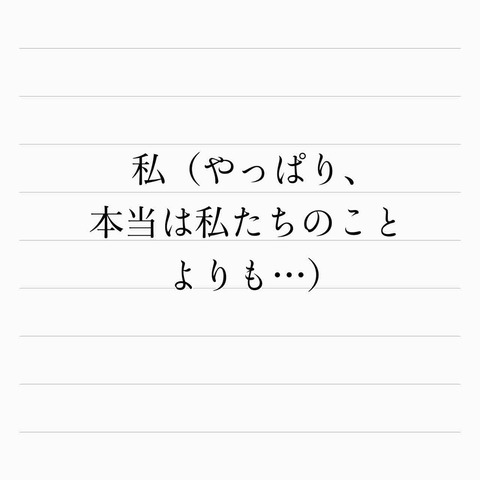 私（やっぱり、
本当は私たちのこと
よりも…）